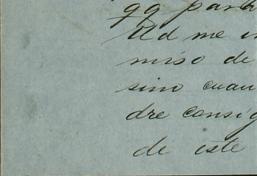 Ud me in
miso de
sino cuan
dre consig
de este